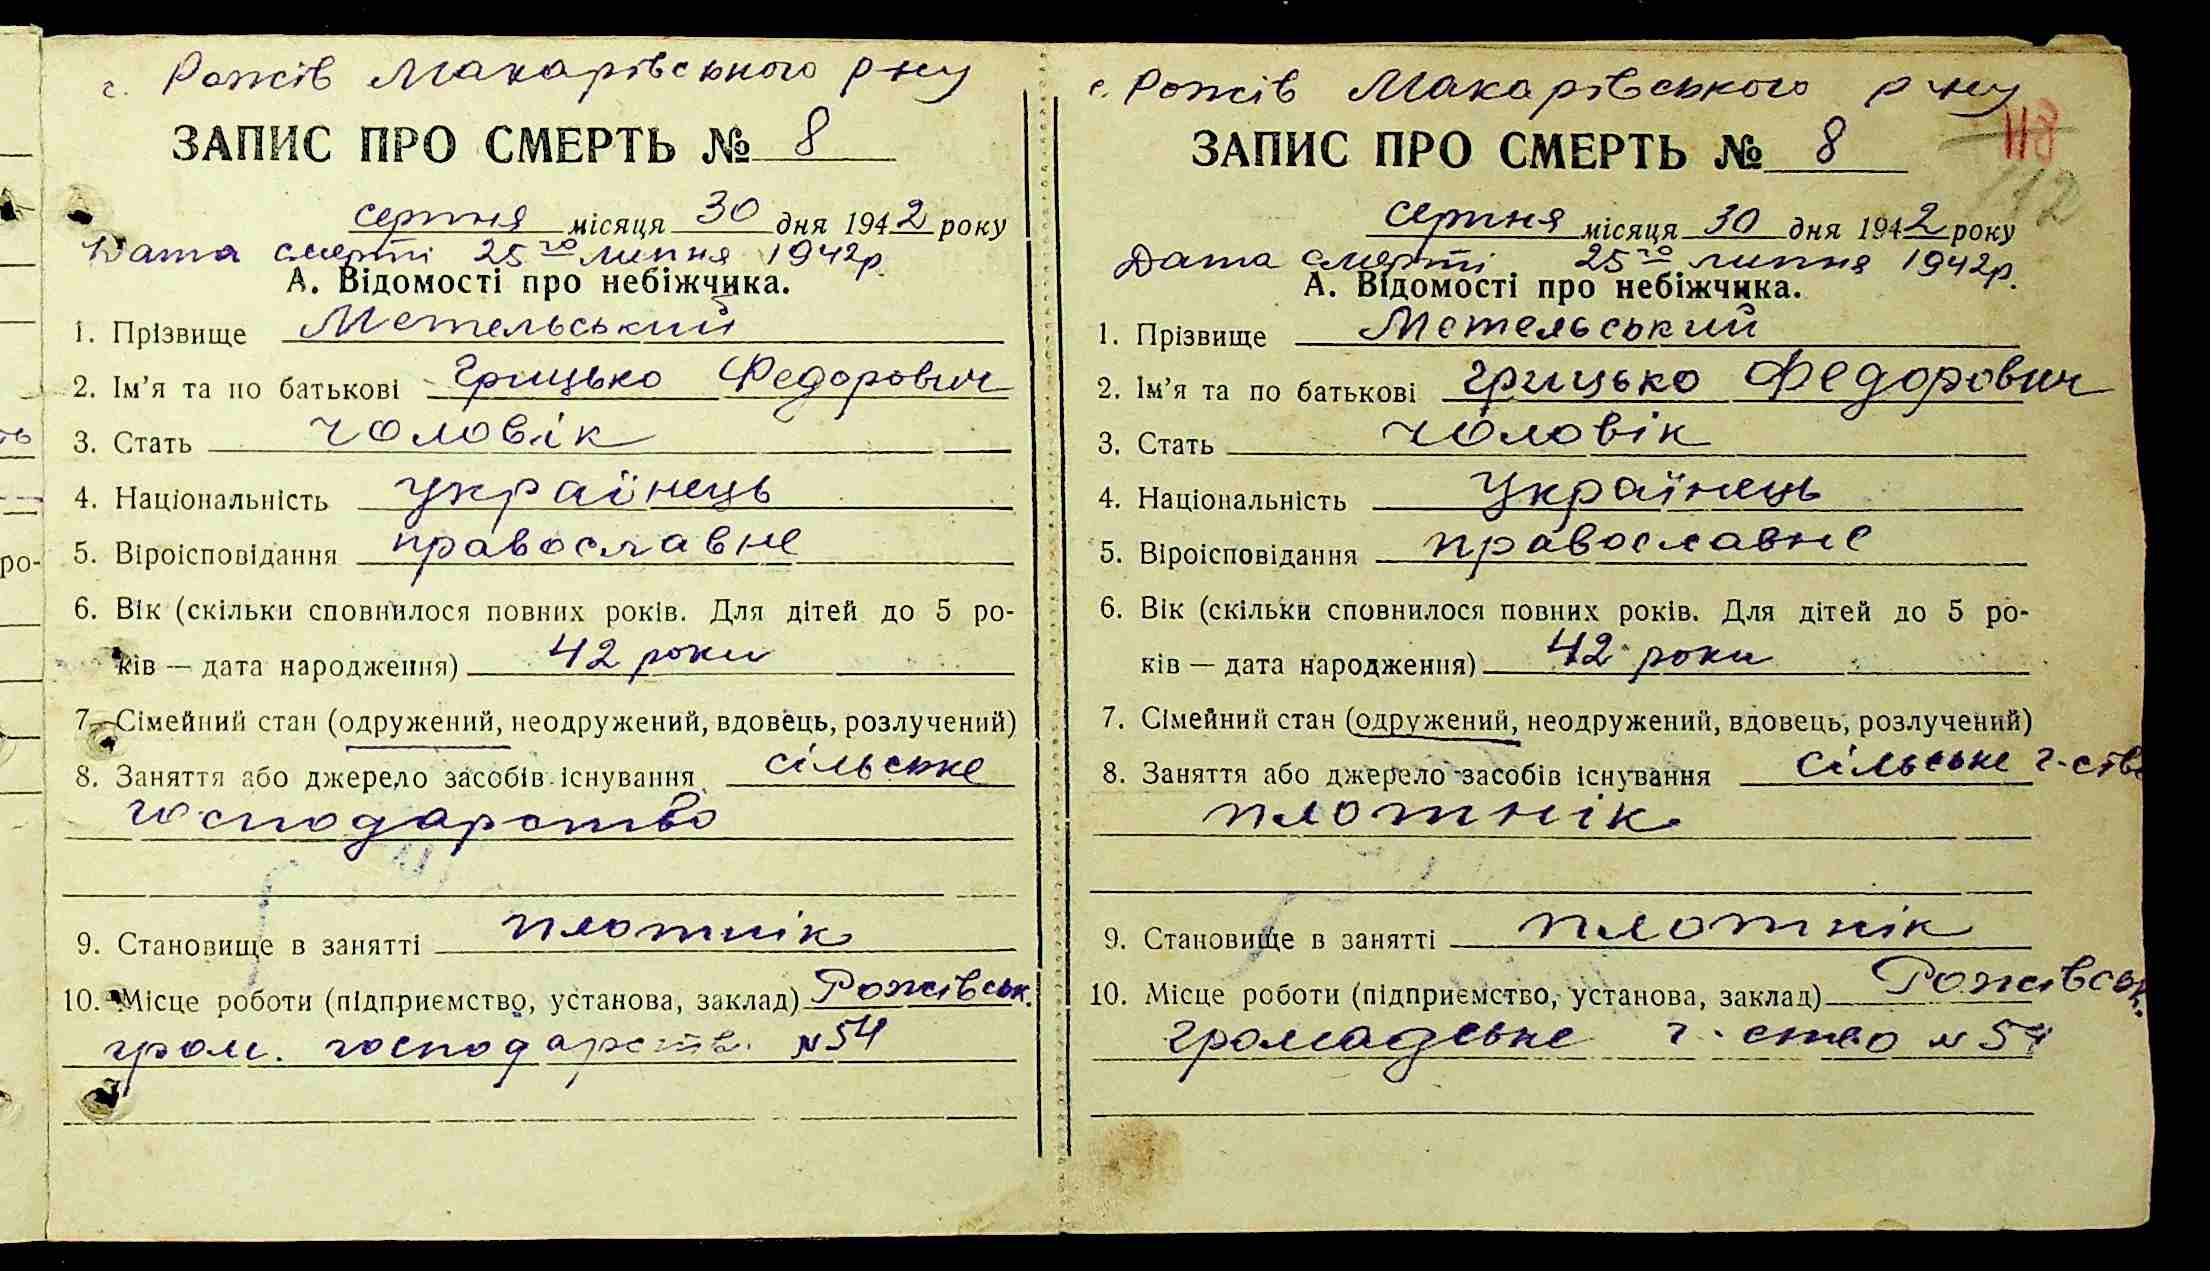 с. Рожів Макарівського р-ну
ЗАПИС ПРО СМЕРТЬ № 8
серпня місяця 30 дня 1942 року
Дата смерті 25го липня 1942р.
А. Відомості про небіжчика.
1. Прізвище Метельський
2. Ім'я та по батькові Грицько Федорович
3. Стать чоловік
4. Національність українець
5. Віроісповідання православне
6. Вік (скільки сповнилося повних років. Для дітей до 5 ро-
ків — дата народження) 42 роки
7. Сімейний стан (одружений, неодружений, вдовець, розлучений)
8. Заняття або джерело засобів існування сільське
господарство
9. Становище в занятті плотнік
10. Місце роботи (підприємство, установа, заклад) Рожівськ.
гром. господарств. №54
с. Рожів Макарівського р-ну
118
ЗАПИС ПРО СМЕРТЬ № 8
112
серпня місяця 30 дня 1942 року
Дата смерті 25го липня 1942р.
А. Відомості про небіжчика.
1. Прізвище Метельський
2. Ім'я та по батькові Грицько Федорович
3. Стать чоловік
4. Національність Українець
5. Віроісповідання православне
6. Вік (скільки сповнилося повних років. Для дітей до 5 ро-
ків — дата народження) 42 роки
7. Сімейний стан (одружений, неодружений, вдовець, розлучений)
8. Заняття або джерело засобів існування сільське г-ство
плотнік
9. Становище в занятті плотнік
10. Місце роботи (підприємство, установа, заклад) Рожівськ.
громадське г-ство №54